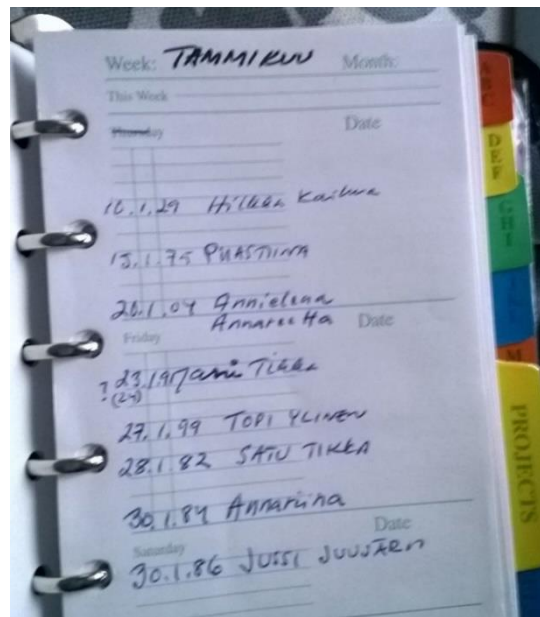 Week: TAMMIKUU Month:
This Week
Thursday Date
10.1.29 Hilkka
15.1.75 PIIASTIINA
20.1.04 Annieleena
Annareetta
Friday Date
? 23.1.91 Jani Tikka
(24)
27.1.99 TOPI YLINEN
28.1.82 SATU TIKKA
30.1.84 Annariina
Date
Saturday
30.1.86 JUSSI JUUJÄRVI
DEF
GHI
M
PROJECTS